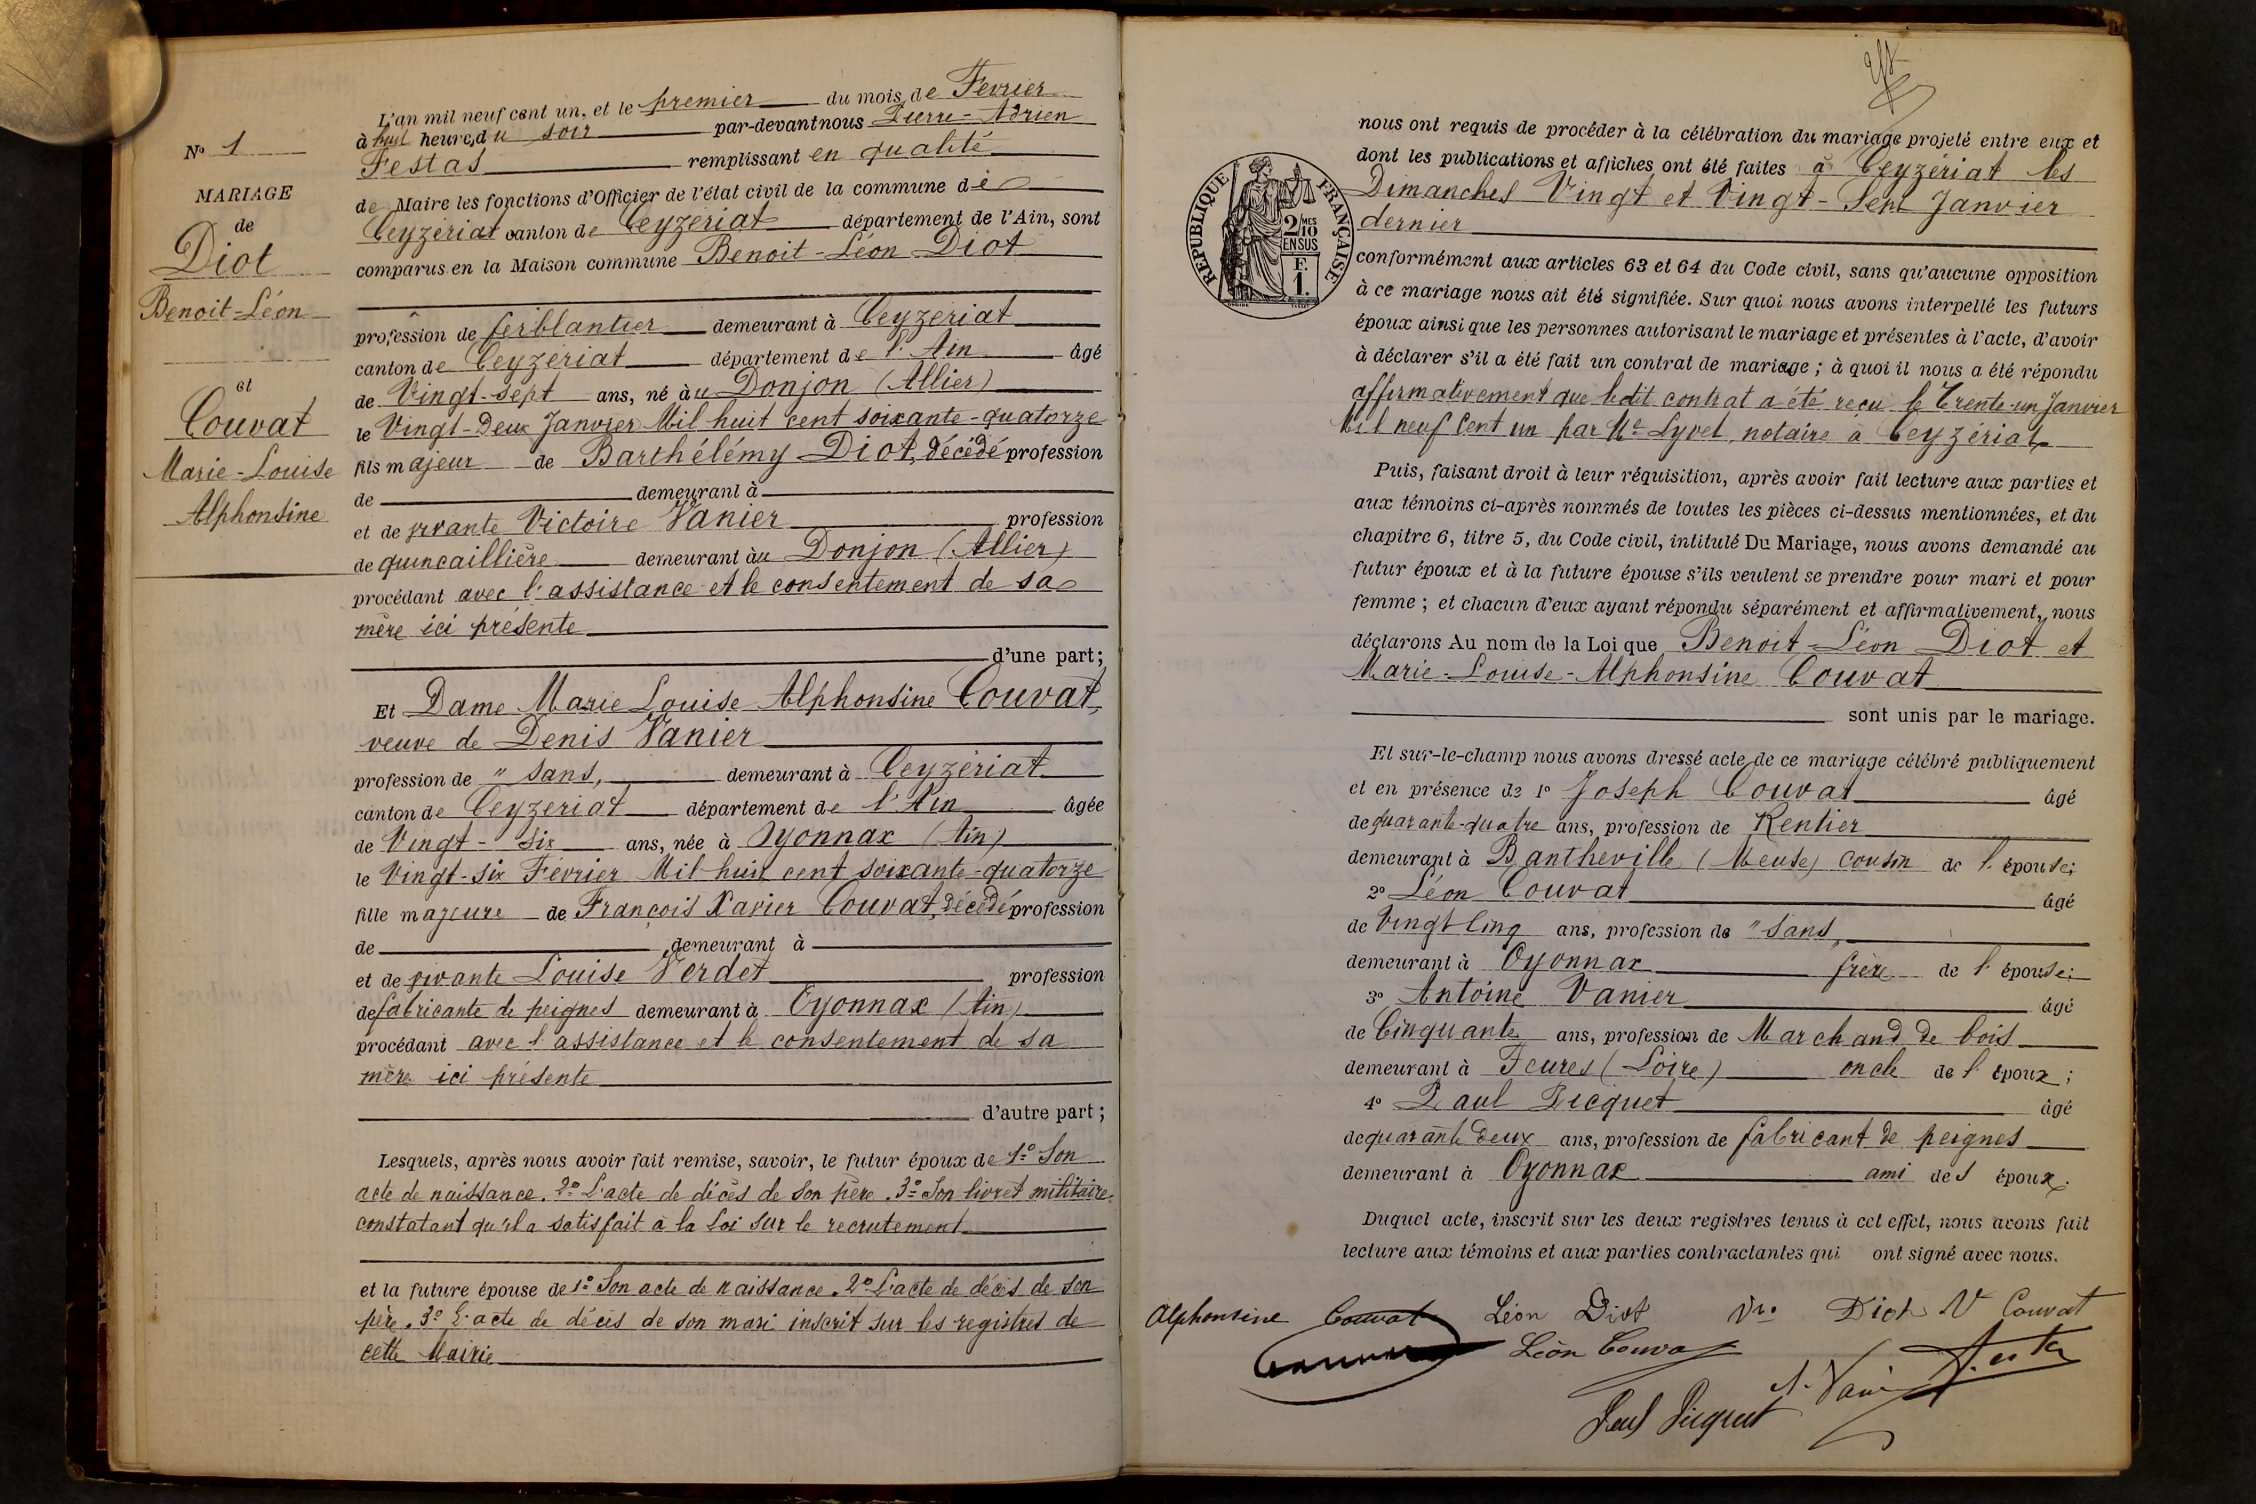 N° 1
MARIAGE
de
Diot
Benoit-Léon
et
Couvat
Marie-Louise
Alphonsine
L'an mil neuf cent un, et le premier du mois de Février
à huit heures du soir par-devant nous Pierre-Adrien
Festas remplissant en qualité
de Maire les fonctions d'Officier de l'état civil de la commune de
Ceyzériat canton de Ceyzériat département de l'Ain, sont
comparus en la Maison commune Benoit-Léon Diot
profession de ferblantier demeurant à Ceyzériat
canton de Ceyzériat département de l'Ain âgé
de Vingt-sept ans, né àu Donjon (Allier)
le Vingt-Deux Janvier Mil huit cent soixante-quatorze
fils majeur de Barthélémy Diot, décédé profession
de demeurant à
et de vivante Victoire Vanier profession
de quincaillière demeurant àu Donjon (Allier)
procédant avec l'assistance et le consentement de sa
mère ici présente
d'une part;
Et Dame Marie Louise Alphonsine Couvat,
veuve de Denis Vanier
profession de " sans, demeurant à Ceyzériat
canton de Ceyzériat département de l'Ain âgée
de Vingt-six ans, née à Oyonnax (Ain)
le Vingt-six Février Mil huit cent soixante-quatorze
fille majeure de François Xavier Couvat, décédé profession
de demeurant à
et de vivante Louise Verdet profession
de fabricante de peignes demeurant à Oyonnax (Ain)
procédant avec l'assistance et le consentement de sa
mère ici présente
d'autre part;
Lesquels, après nous avoir fait remise, savoir, le futur époux de 1° Son
acte de naissance. 2° L'acte de décès de son père. 3° Son livret militaire
constatant qu'il a satisfait à la loi sur le recrutement
et la future épouse de 1° Son acte de naissance. 2° L'acte de décès de son
père. 3° L'acte de décès de son mari inscrit sur les registres de
cette Mairie
RÉPUBLIQUE FRANÇAISE
2 MES
10
EN SUS
F.
1.
nous ont requis de procéder à la célébration du mariage projeté entre eux et
dont les publications et affiches ont été faites à Ceyzériat les
Dimanches Vingt et Vingt-Sept Janvier
dernier
conformément aux articles 63 et 64 du Code civil, sans qu'aucune opposition
à ce mariage nous ait été signifiée. Sur quoi nous avons interpellé les futurs
époux ainsi que les personnes autorisant le mariage et présentes à l'acte, d'avoir
à déclarer s'il a été fait un contrat de mariage; à quoi il nous a été répondu
affirmativement que ledit contrat a été reçu le Trente-un Janvier
Mil neuf Cent un par Me Lyvet, notaire à Ceyzériat
Puis, faisant droit à leur réquisition, après avoir fait lecture aux parties et
aux témoins ci-après nommés de toutes les pièces ci-dessus mentionnées, et du
chapitre 6, titre 5, du Code civil, intitulé Du Mariage, nous avons demandé au
futur époux et à la future épouse s'ils veulent se prendre pour mari et pour
femme; et chacun d'eux ayant répondu séparément et affirmativement, nous
déclarons Au nom de la Loi que Benoit-Léon Diot et
Marie-Louise-Alphonsine Couvat
sont unis par le mariage.
Et sur-le-champ nous avons dressé acte de ce mariage célébré publiquement
et en présence de 1° Joseph Couvat âgé
de quarante-quatre ans, profession de Rentier
demeurant à Bantheville (Meuse) cousin de l'épouse;
2° Léon Couvat âgé
de Vingt Cinq ans, profession de " sans,
demeurant à Oyonnax frère de l'épouse;
3° Antoine Vanier âgé
de Cinquante ans, profession de Marchand de bois
demeurant à Feures (Loire) oncle de l'époux;
4° Paul Picquet âgé
de quarante Deux ans, profession de fabricant de peignes
demeurant à Oyonnax ami des époux.
Duquel acte, inscrit sur les deux registres tenus à cet effet, nous avons fait
lecture aux témoins et aux parties contractantes qui ont signé avec nous.
Alphonsine Couvat Léon Diot Vve Diot V Couvat
Léon Couvat
A. Vanier
Paul Picquet